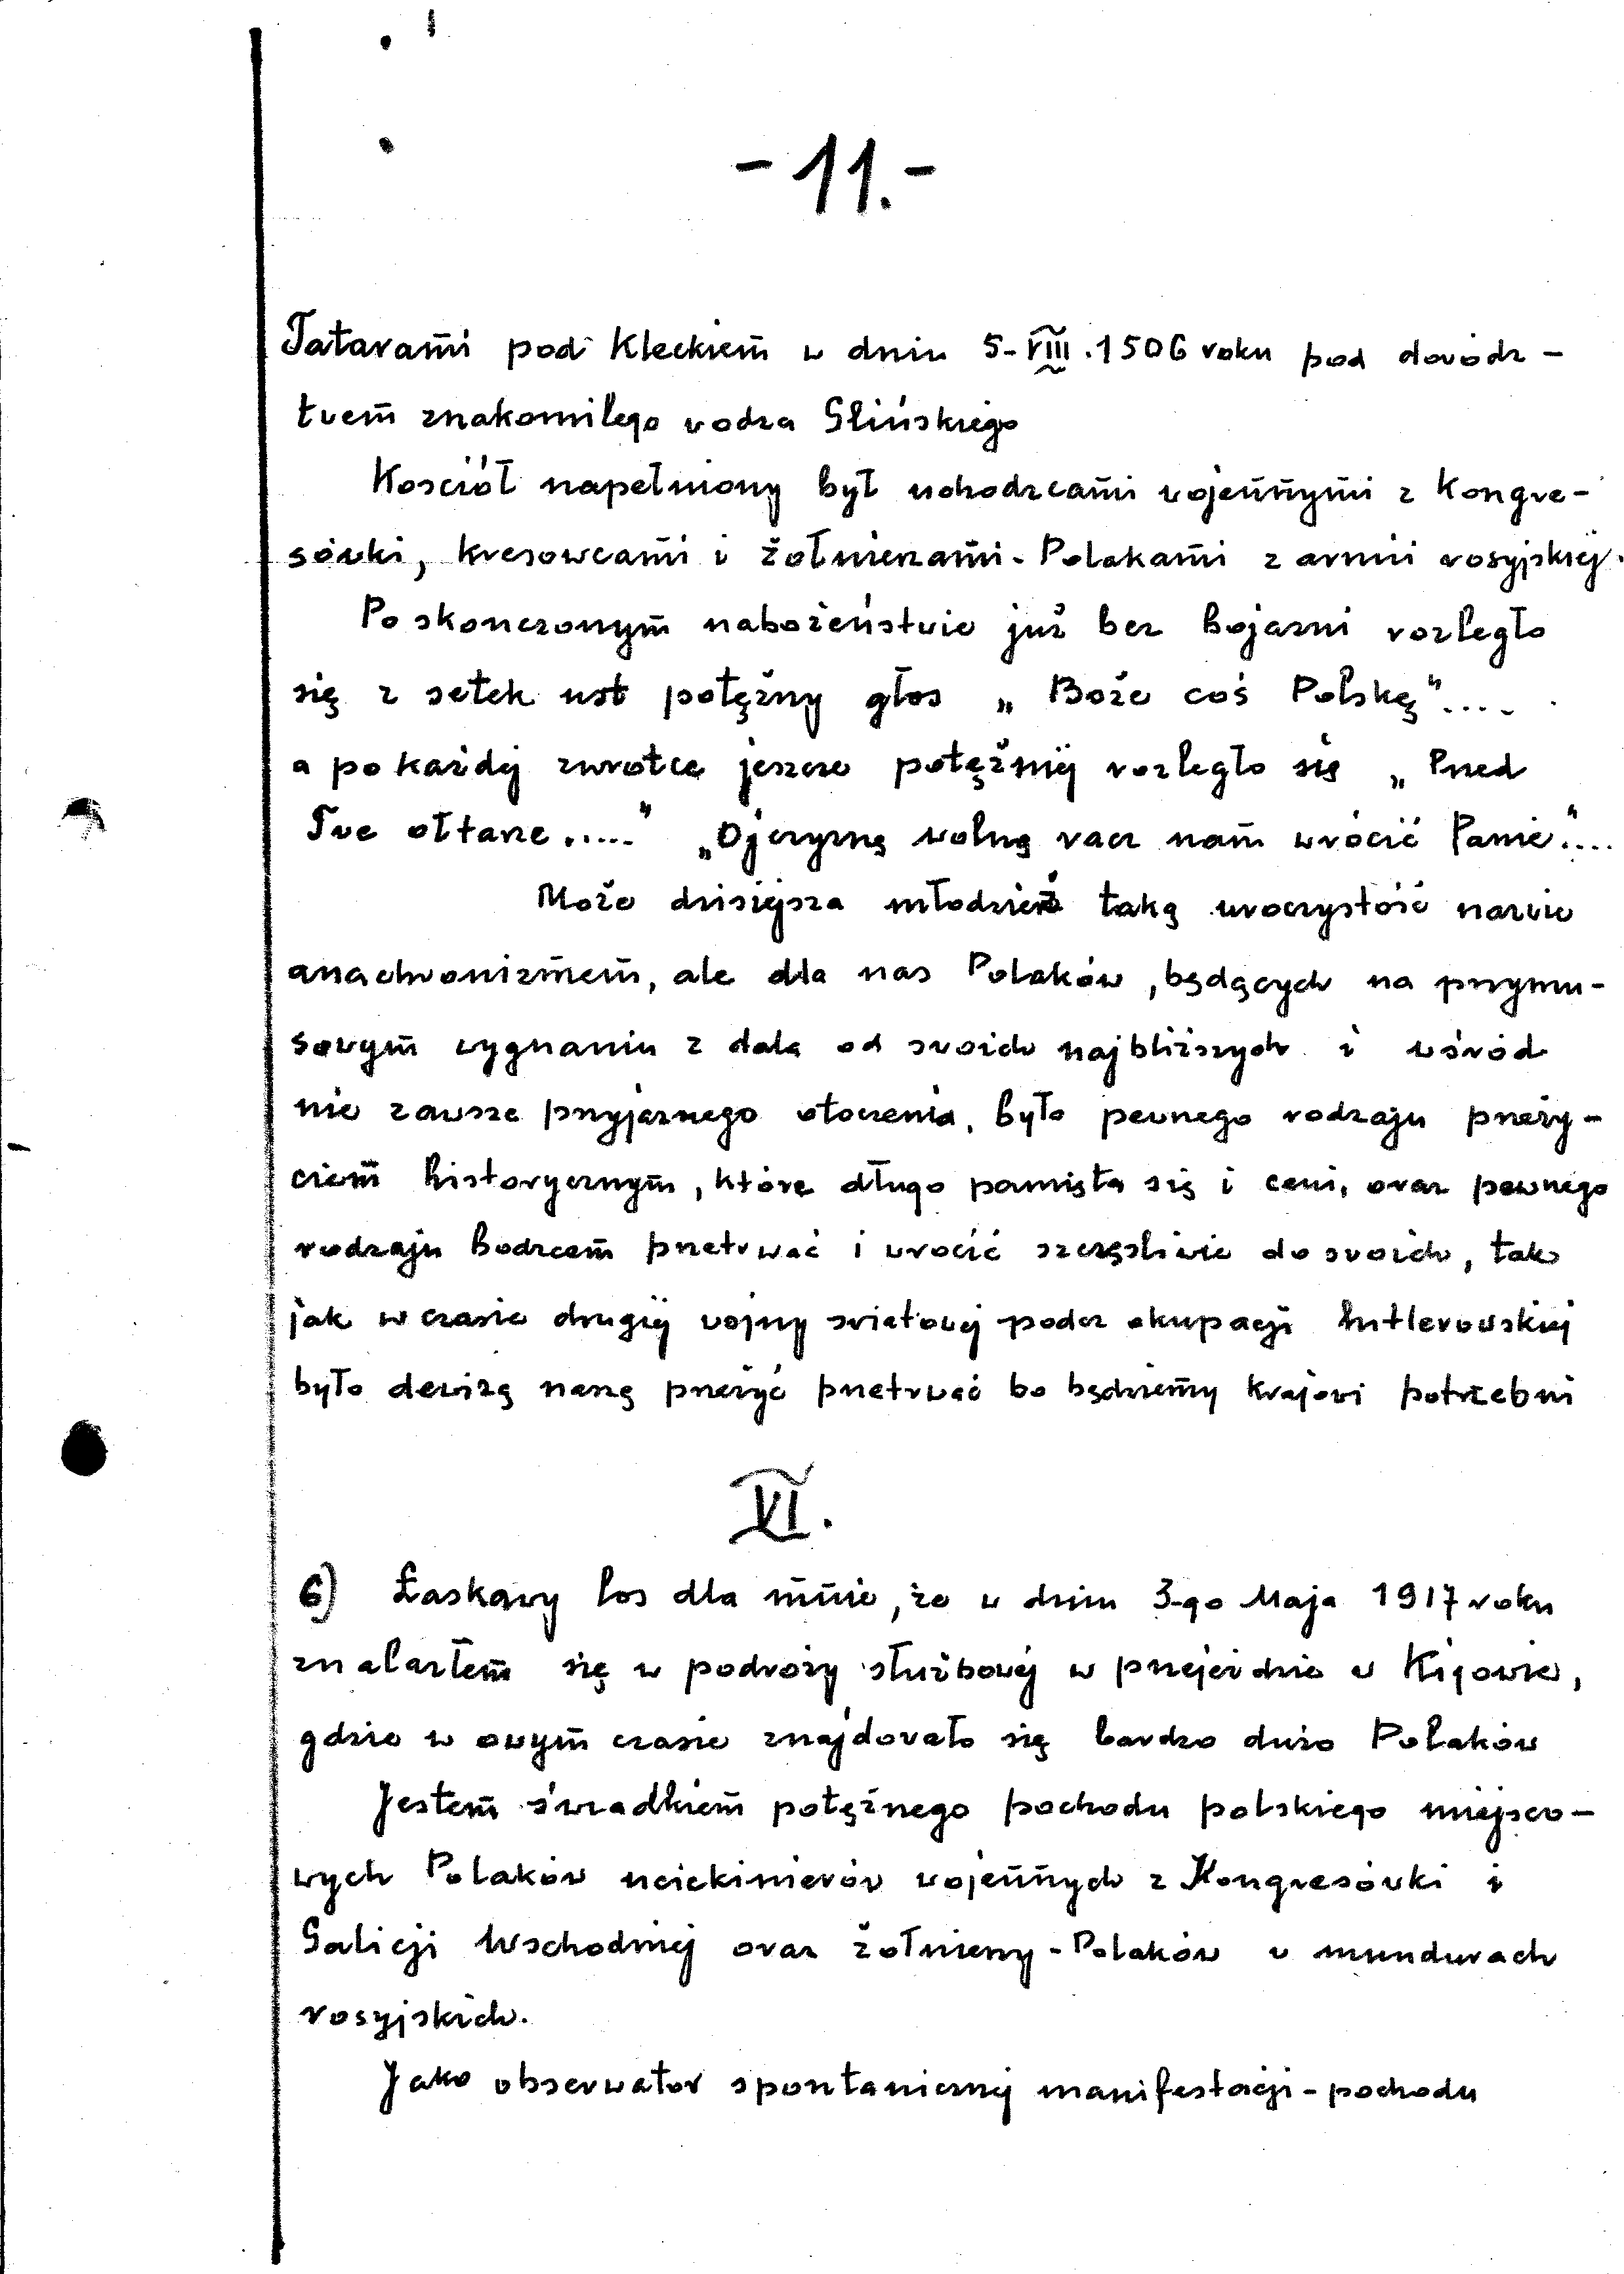 - 11. -
Tatarami pod Kleckiem w dniu 5-VIII.1506 roku pod dowódz-
twem znakomitego wodza Glińskiego
Kosciół napełniony był uchodzcami wojennymi z Kongre-
sówki, kresowcami i żołnierzami-Polakami z armii rosyjskiej.
Po skonczonym nabożeństwie już bez bojazni rozległo
się z setek ust potężny głos „Boże coś Polskę".....
a po każdej zwrotce jeszcze potężniej rozległo się „Przed
Twe ołtarze....." „Ojczyznę wolną racz nam wrócić Panie"....
Może dzisiejsza młodzież taką uroczystość nazwie
anachronizmem, ale dla nas Polaków, będących na przymu-
sowym wygnaniu z dala od swoich najbliższych i wśród
nie zawsze przyjaznego otoczenia, było pewnego rodzaju przeży-
ciem historycznym, które długo pamięta się i ceni, oraz pewnego
rodzaju bodzcem przetrwać i wrocić szczęśliwie do swoich, tak
jak w czasie drugiej wojny swiatowej podcz okupacji hitlerowskiej
było dewizą naszą przeżyć przetrwać bo będziemy krajowi potrzebni
VI.
6) Łaskawy los dla mnie, że w dniu 3-go Maja 1917 roku
znalazłem się w podroży służbowej w przejezdzie w Kijowie,
gdzie w owym czasie znajdowało się bardzo dużo Polaków
Jestem świadkiem potężnego pochodu polskiego miejsco-
wych Polaków uciekinierów wojennych z Kongresówki i
Galicji Wschodniej oraz żołnierzy-Polaków w mundurach
rosyjskich.
Jako obserwator spontanicznej manifestacji-pochodu